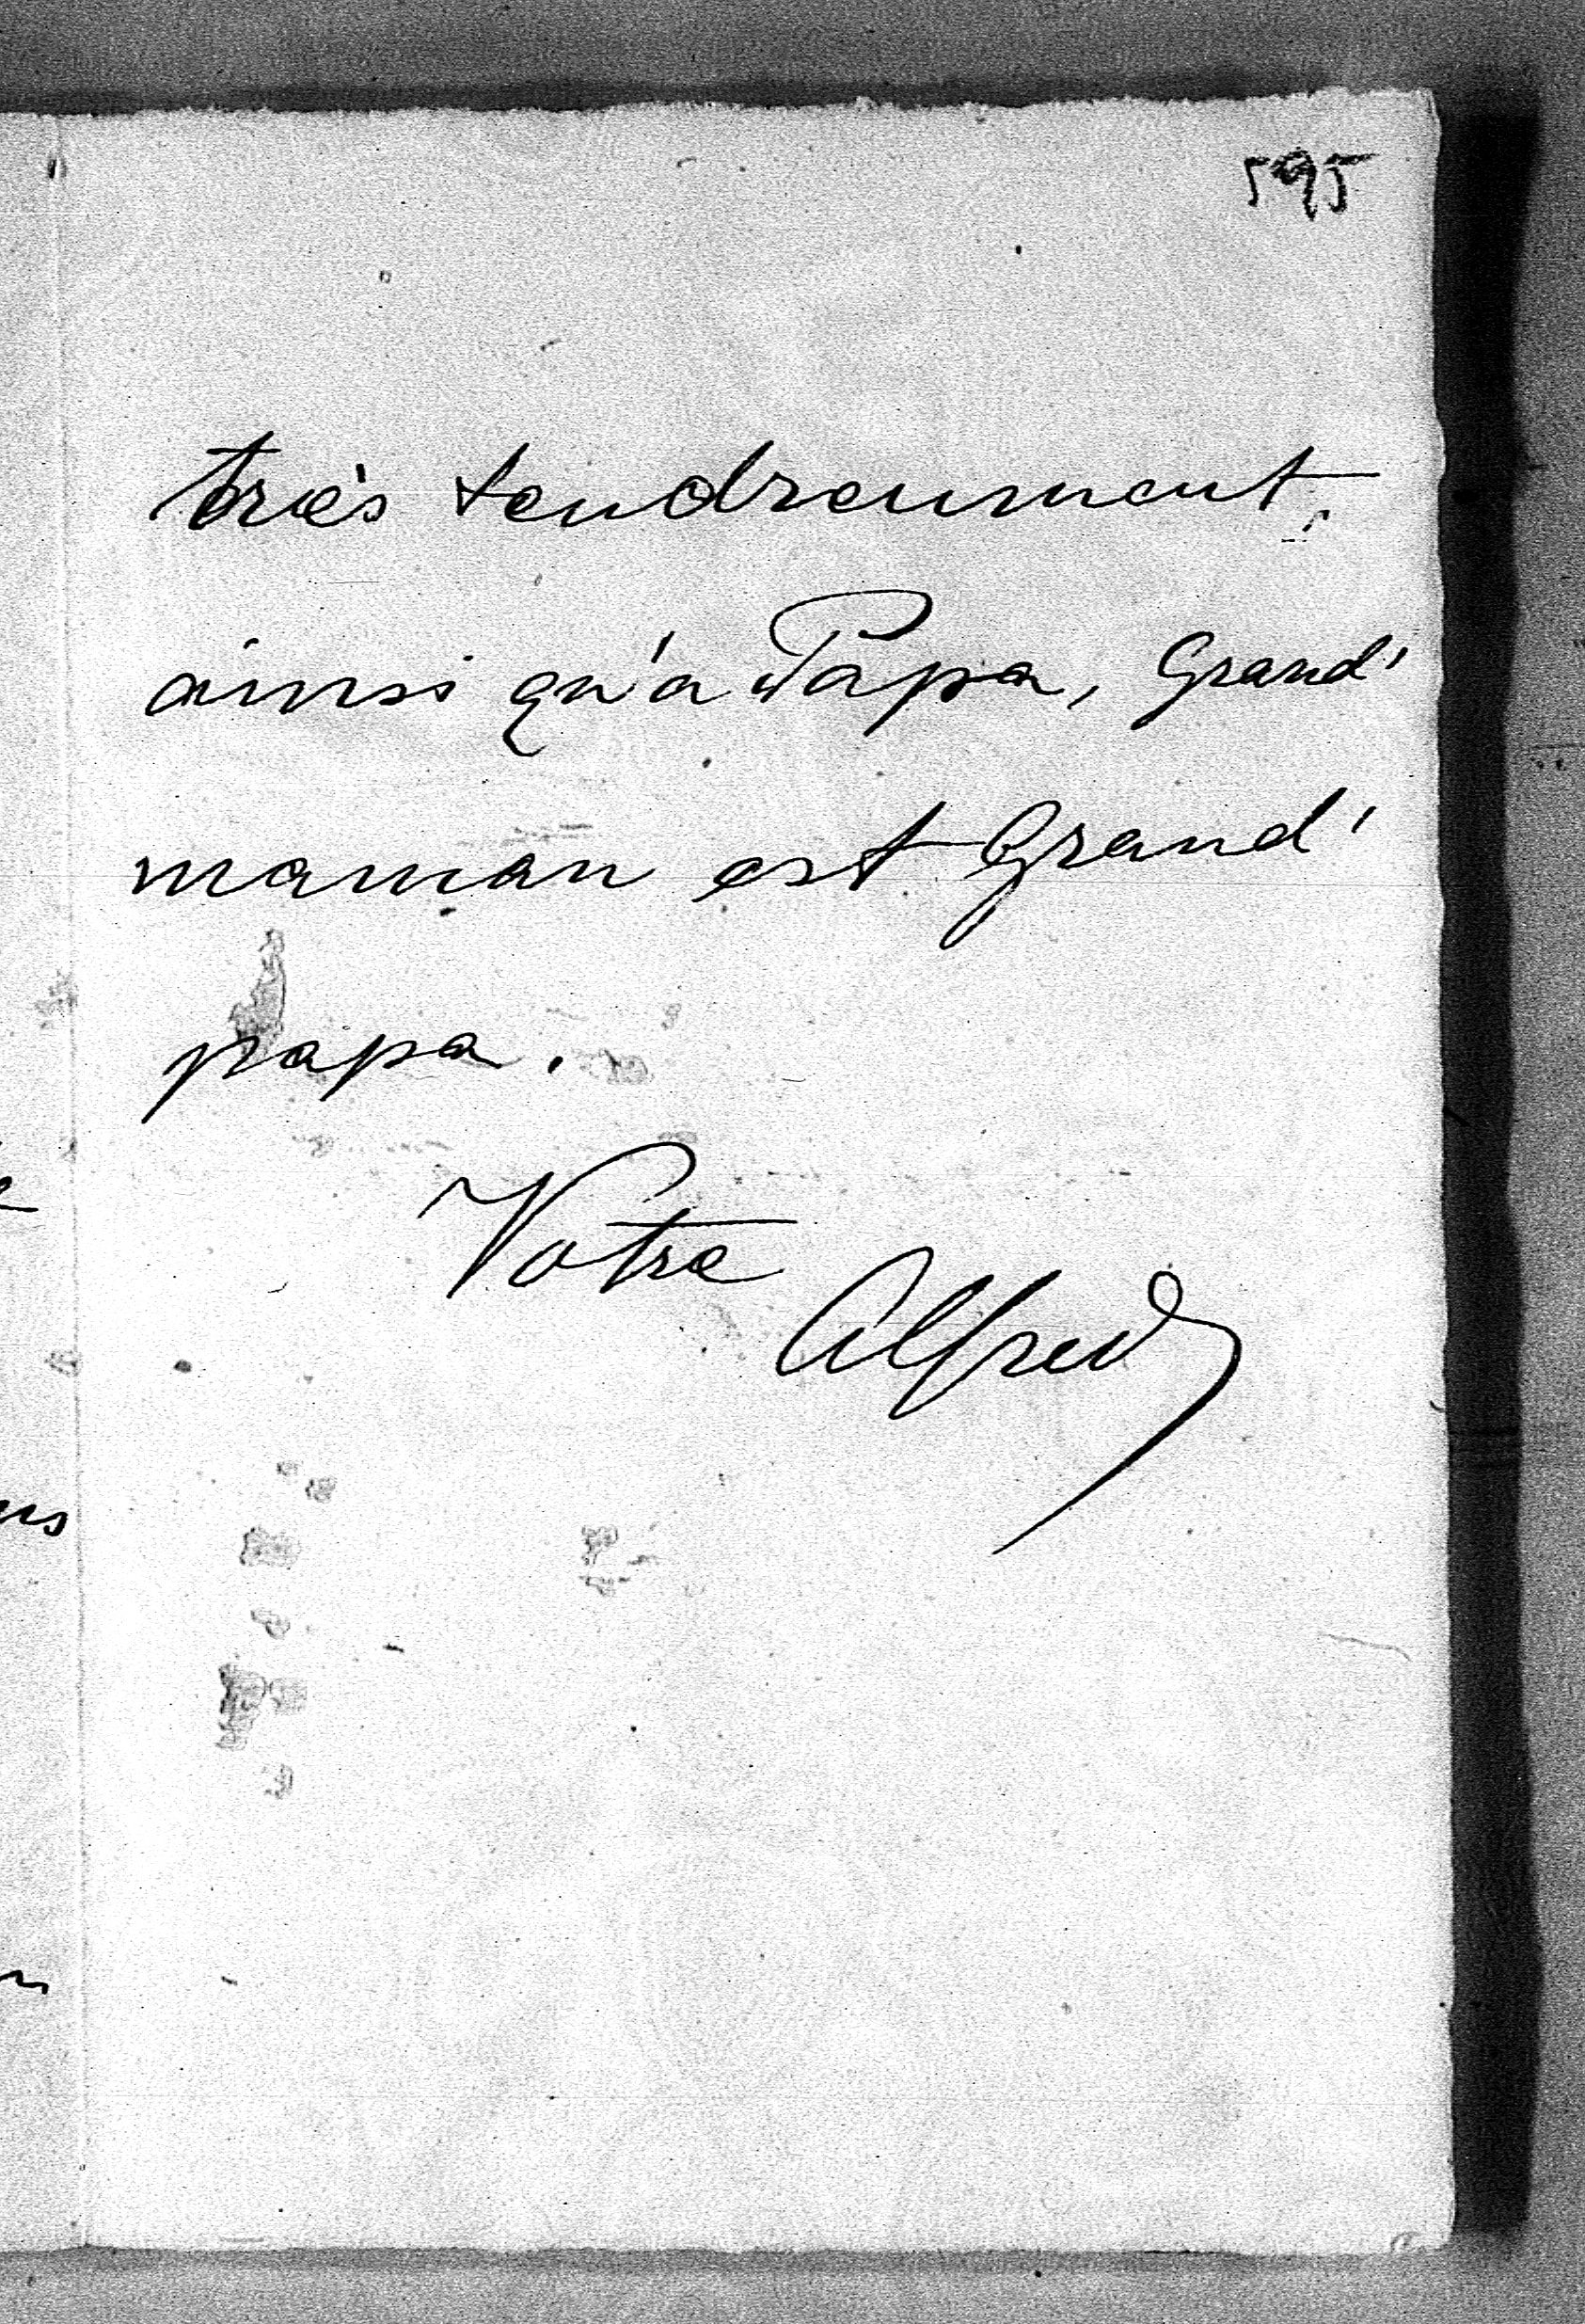 595
très tendreument,
ainsi qu'a Papa, Grand'
maman est Grand'
papa.
Votre
Alfred